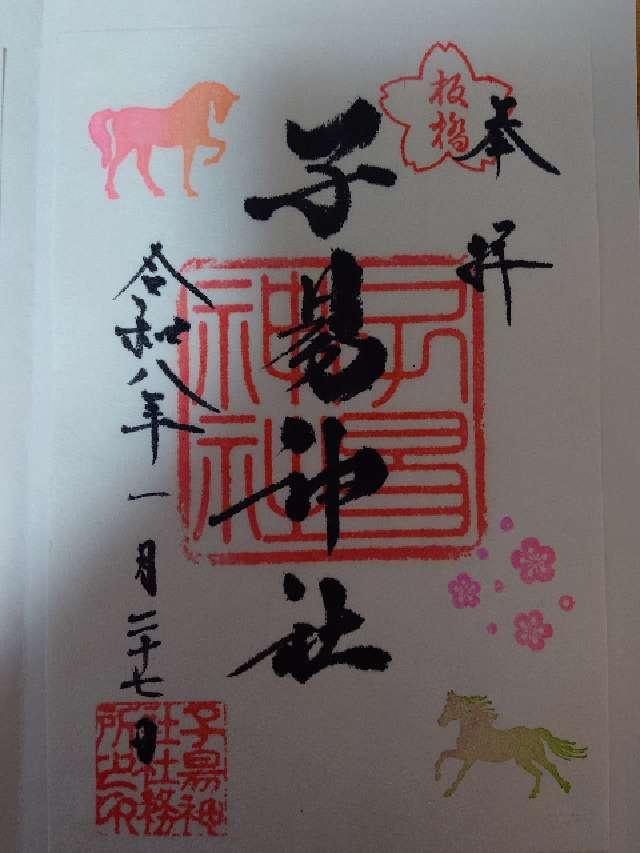 奉拝
板橋
子易神社
子易神社
令和八年一月二十七日
子易神社社務所之印